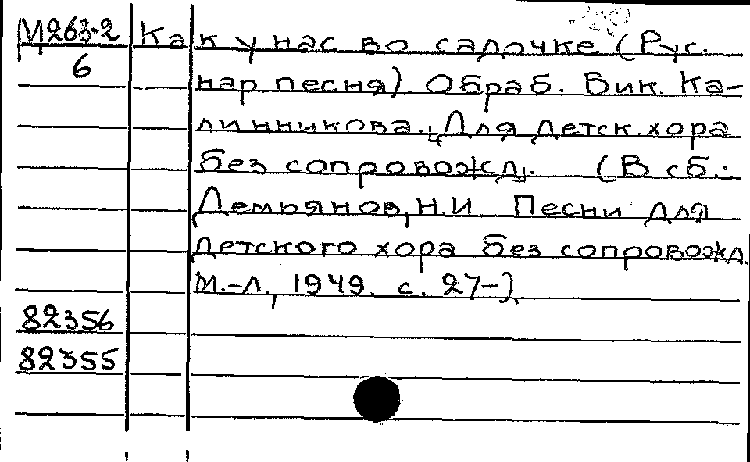 М263-2 Как у нас во садочке (Рус.
6 нар песня) Обраб. Вик. Ка-
линникова. Для детск. хора
без сопровожд. (В сб.:
Демьянов, Н.И. Песни для
детского хора без сопровожд.
М.-Л., 1949. с. 27-).
82356
82355